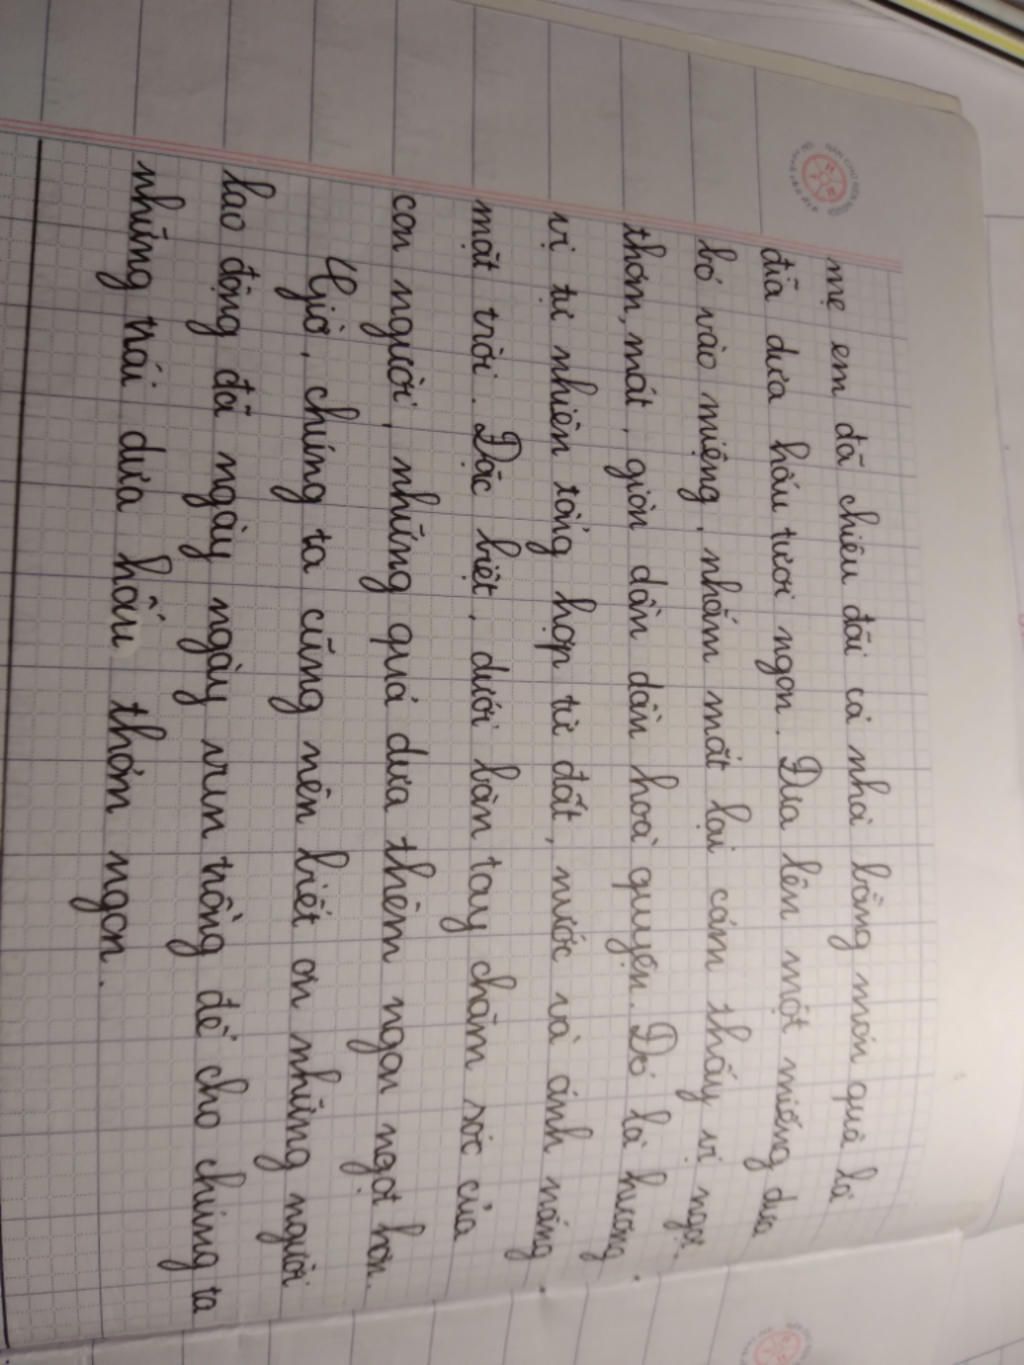 mẹ em đã chiêu đãi cả nhà bằng món quà là
đĩa dưa hấu tươi ngon. Đưa lên một miếng dưa
bỏ vào miệng, nhắm mắt lại cảm thấy vị ngọt,
thơm, mát, giòn dần dần hoà quyện. Đó là hương
vị tự nhiên tổng hợp từ đất, nước và ánh nắng
mặt trời. Đặc biệt, dưới bàn tay chăm sóc của
con người, những quả dưa thêm ngon ngọt hơn.
Giờ, chúng ta cũng nên biết ơn những người
lao động đã ngày ngày vun trồng để cho chúng ta
những trái dưa hấu thơm ngon.